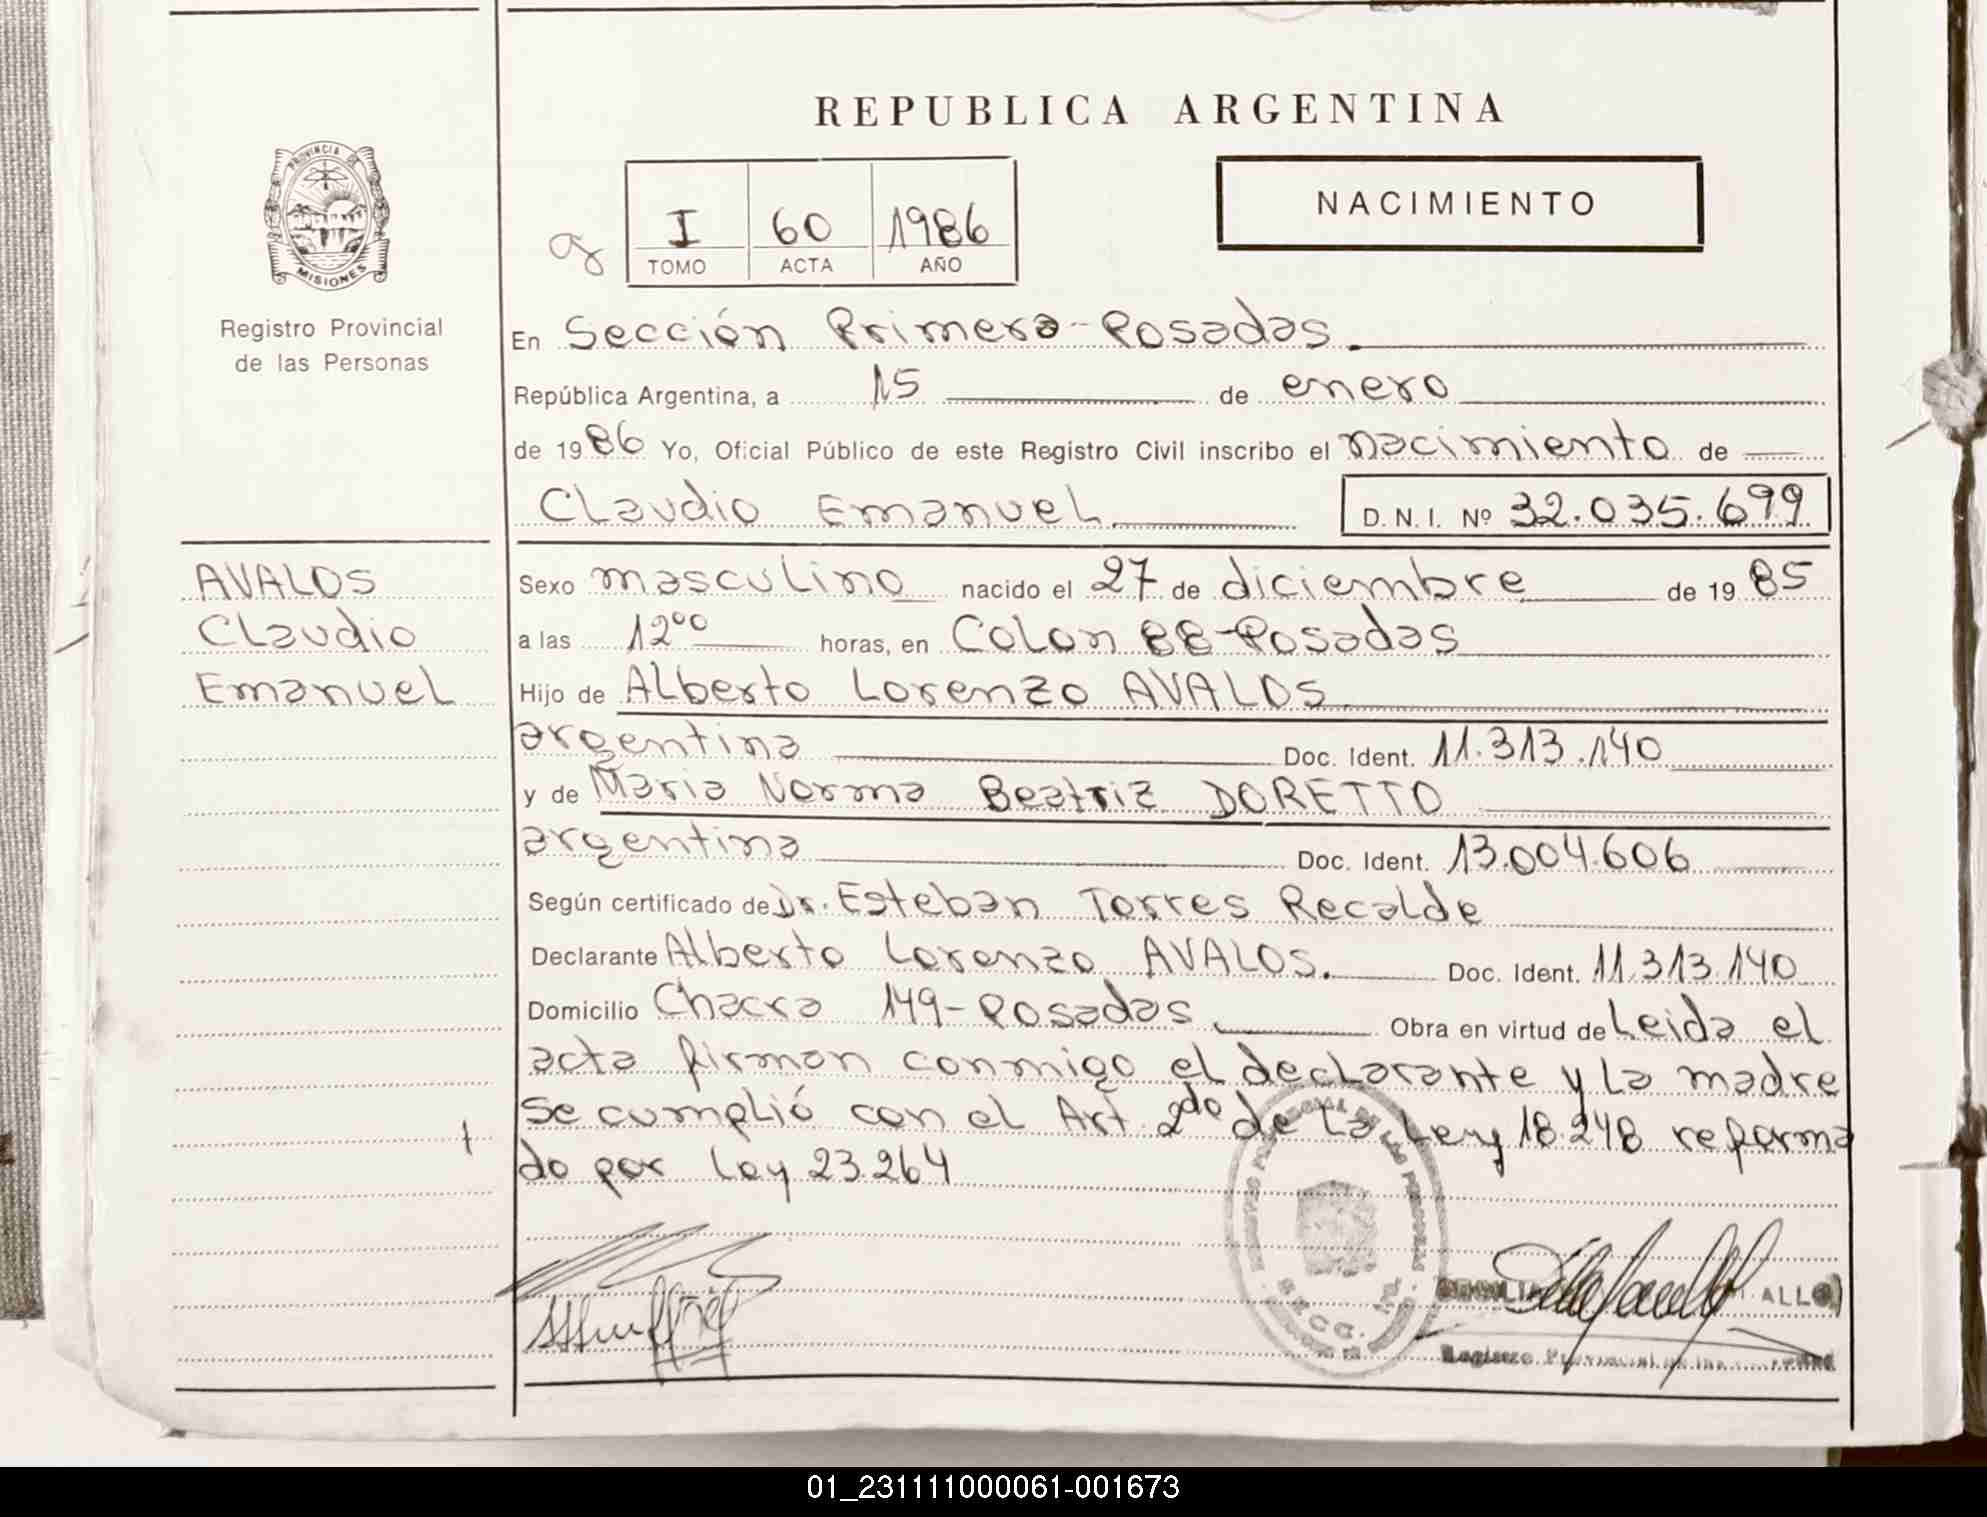 REPUBLICA ARGENTINA
PROVINCIA DE
MISIONES
Registro Provincial
de las Personas
I 60 1986
TOMO ACTA AÑO
NACIMIENTO
En Sección Primera-Posadas.
República Argentina, a 15 de enero
de 1986 Yo, Oficial Público de este Registro Civil inscribo el nacimiento de
Claudio Emanuel D.N.I. Nº 32.035.699
AVALOS
Claudio
Emanuel
Sexo masculino nacido el 27 de diciembre de 1985
a las 12⁰⁰ horas, en Colon 88-Posadas
Hijo de Alberto Lorenzo AVALOS
argentina Doc. Ident. 11.313.140
y de Maria Norma Beatriz DORETTO
argentina Doc. Ident. 13.004.606
Según certificado de Dr. Esteban Torres Recalde
Declarante Alberto Lorenzo AVALOS. Doc. Ident. 11.313.140
Domicilio Chacra 149-Posadas Obra en virtud de Leida el
acta firman conmigo el declarante y la madre
Se cumplió con el Art. 2do de la Ley 18.248 reforma
do por Ley 23.264
Registro Provincial de las
01_231111000061-001673